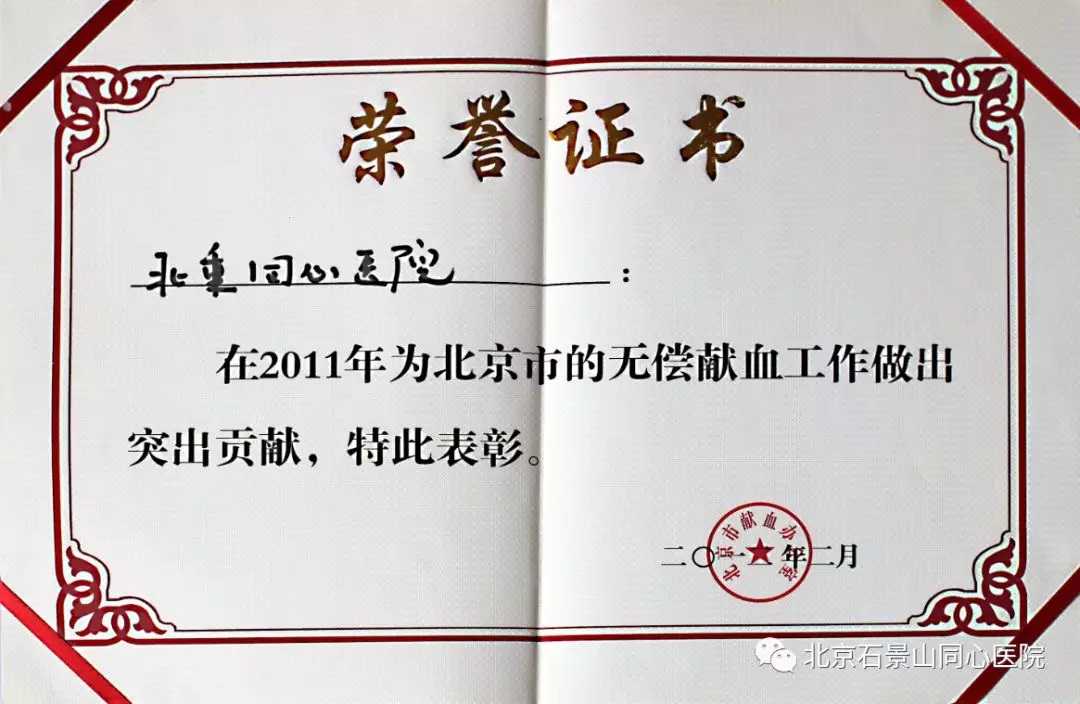 荣誉证书
北重同心医院：
在2011年为北京市的无偿献血工作做出
突出贡献，特此表彰。
北京市献血办公室
二〇一二年二月
北京石景山同心医院